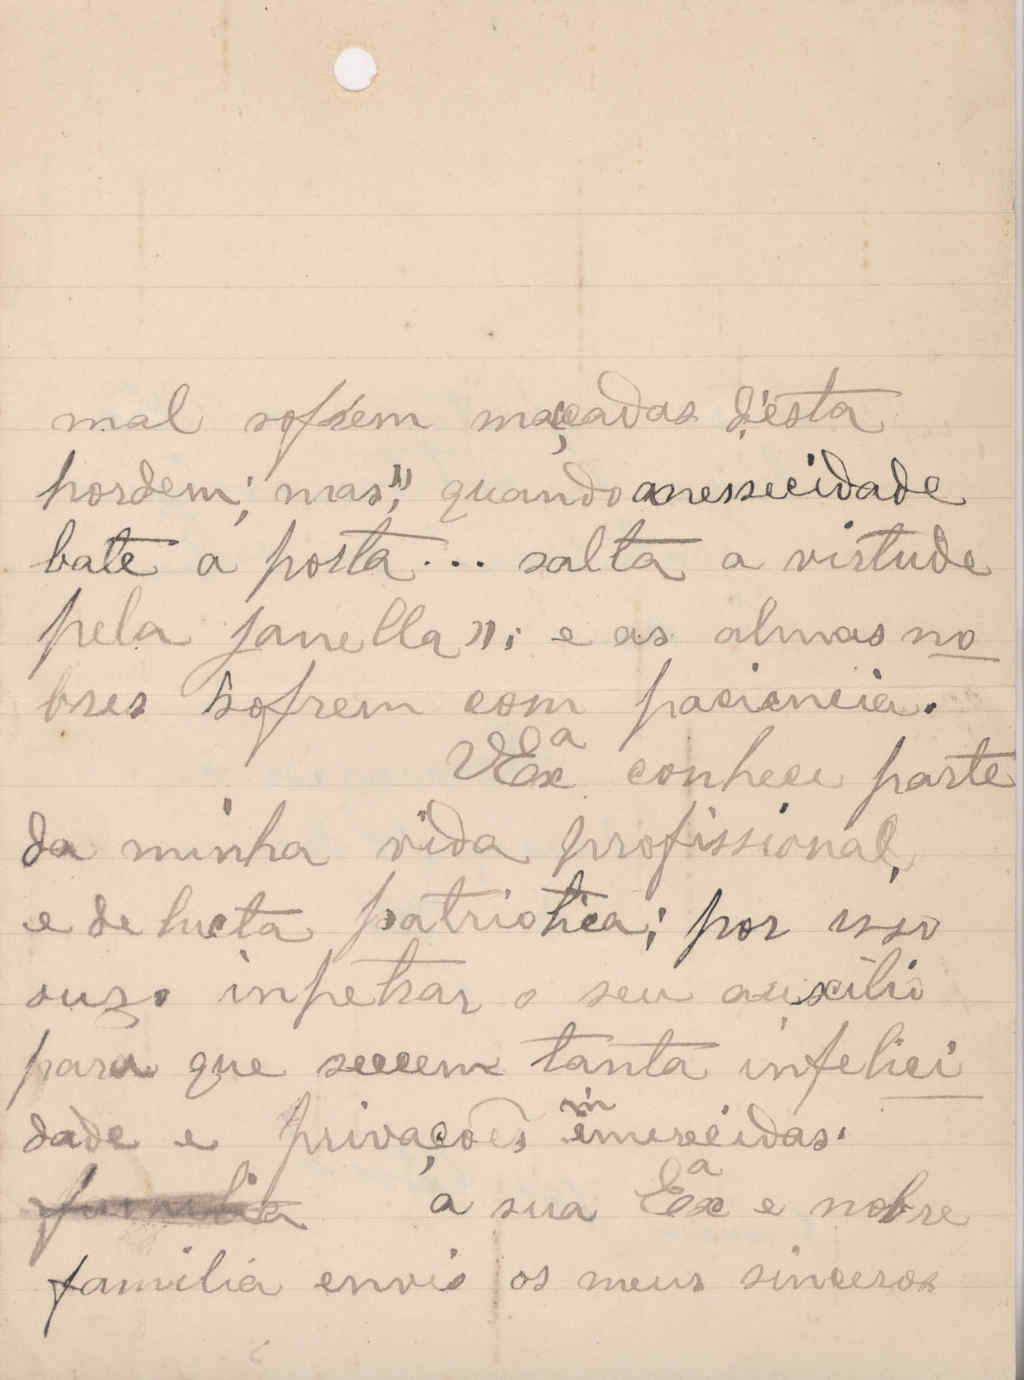 mal sofrem maçadas d'esta
hordem; mas", quando a nessecidade
bate a porta... salta a virtude
pela janella»; e as almas no
bres sofrem com paciencia.
VExª conhece parte
da minha vida profissional,
e de lucta patriotica; por isso
ouzo inpetrar o seu auxilio
para que secem tanta infelici
dade e privações immerecidas.
familia a sua Exª e nobre
familia envio os meus sinceros